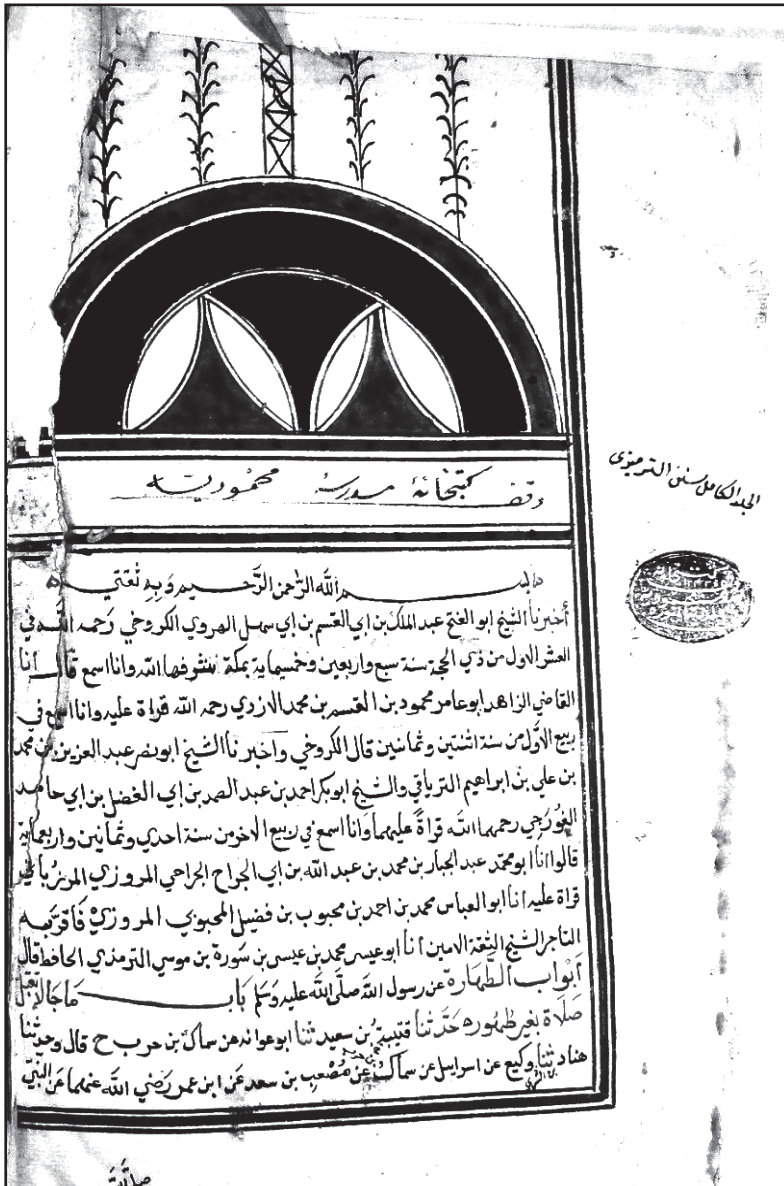 وقف كتبخانهٔ مدرسهٔ محموديه
المجلد الكامل سنن الترمذي
بسم الله الرحمن الرحيم وبه ثقتي
أخبرنا الشيخ ابو الفتح عبد الملك بن ابي القسم بن ابي سهل الهروي الكروخي رحمه الله في
العشر الاول من ذي الحجة سنة سبع واربعين وخمسماية بمكة شرفها الله وانا اسمع قال انا
القاضي الزاهد ابو عامر محمود بن القسم بن محمد الازدي رحمه الله قراة عليه وانا اسمع في
ربيع الاول من سنة اثنتين وثمانين قال الكروخي واخبرنا الشيخ ابو نصر عبد العزيز بن محمد
بن علي بن ابراهيم الترياقي والشيخ ابو بكر احمد بن عبد الصمد بن ابي الفضل بن ابي حامد
الغورجي رحمهما الله قراةً عليهما وانا اسمع في ربيع الاخر من سنة احدي وثمانين واربعماية
قالوا انا ابو محمد عبد الجبار بن محمد بن عبد الله بن ابي الجراح الجراحي المروزي المرزباني
قراة عليه انا ابو العباس محمد بن احمد بن محبوب بن فضيل المحبوبي المروزي فاقر به
التاجر الشيخ الثقة الامين انا ابو عيسى محمد بن عيسى بن سَورة بن موسي الترمذي الحافظ قال
أبواب الطهارة عن رسول الله صلى الله عليه وسلم باب ما جا لا تقبل
صلاة بغير طهور حدثنا قتيبة بن سعيد ثنا ابو عوانه عن سماك بن حرب ح قال وحدثنا
هناد ثنا وكيع عن اسرايل عن سماك عن مُصْعب بن سعد عن ابن عمر رضي الله عنهما عن النبي